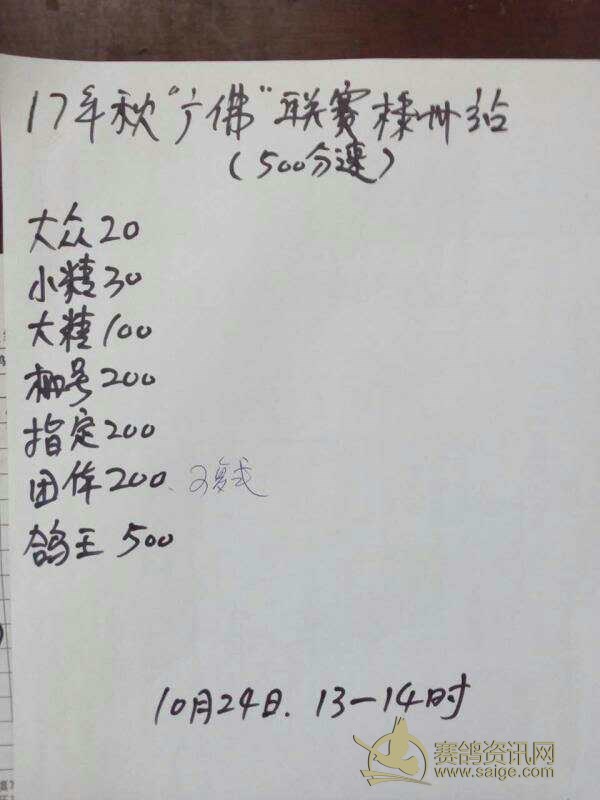 17年秋“广佛”联赛株州站
(500分速)
大众20
小精30
大精100
栅号200
指定200
团体200.又复式
鸽王500
10月24日.13-14时
赛鸽资讯网
www.saige.com